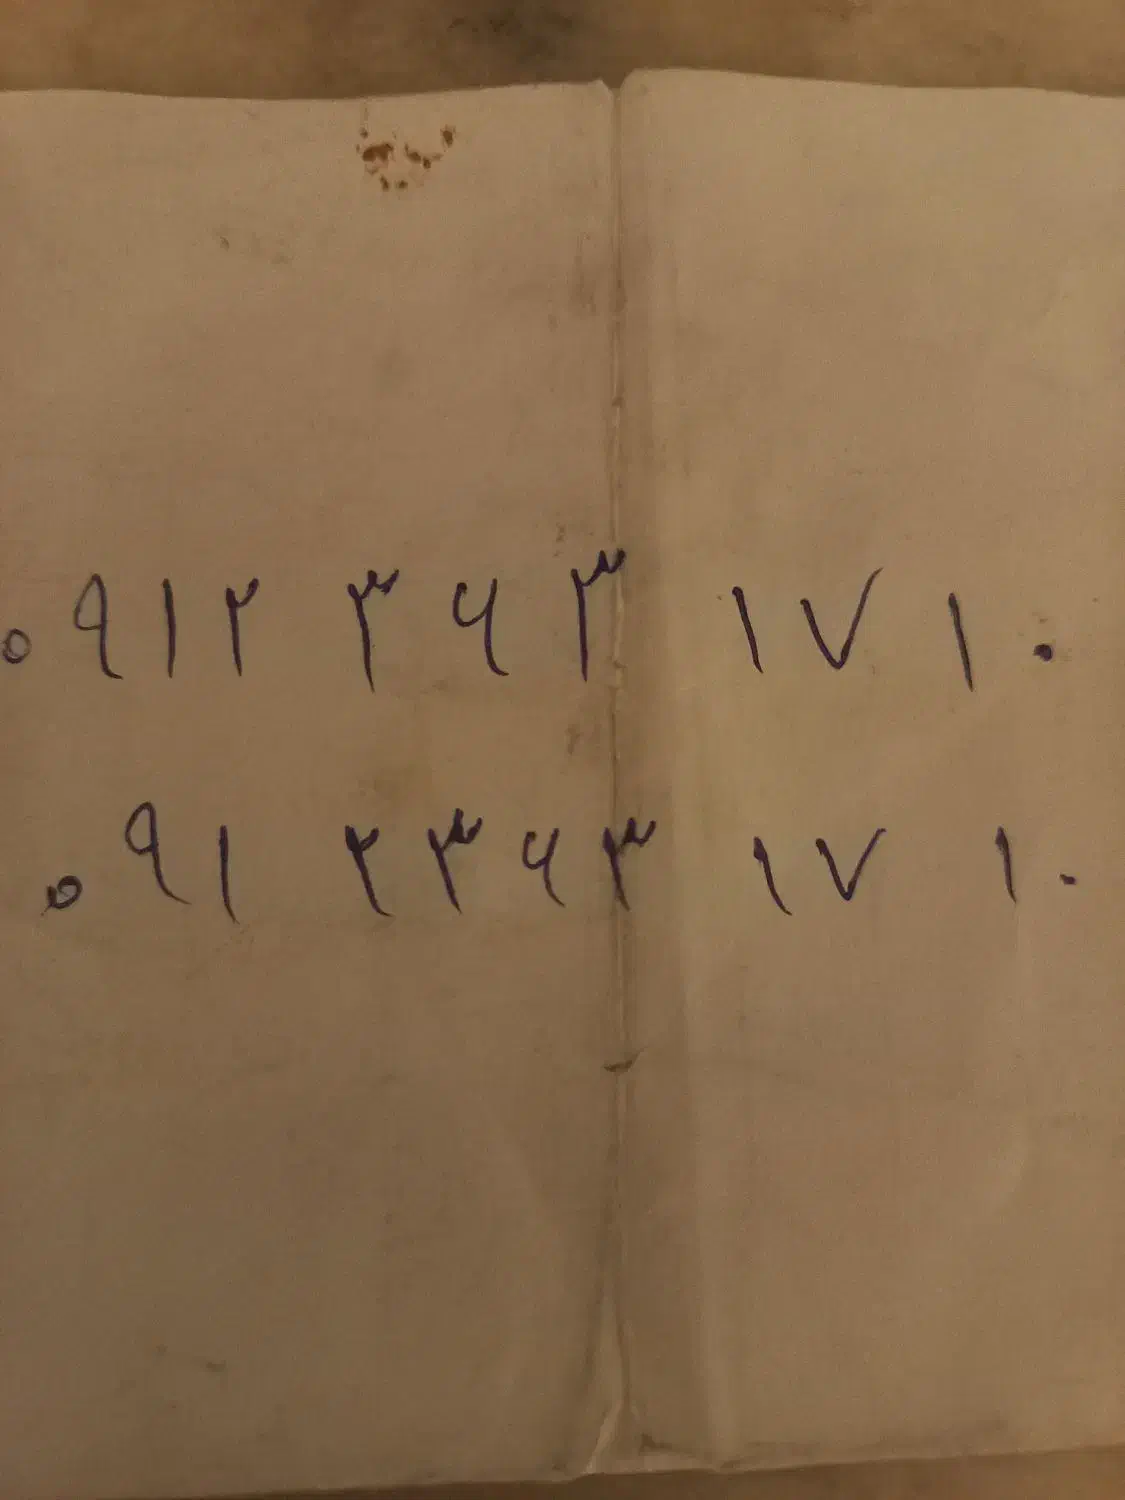 ۰۹۱۲ ۳۶۳ ۱۷۱۰
۰۹۱ ۲۳۶۳ ۱۷ ۱۰